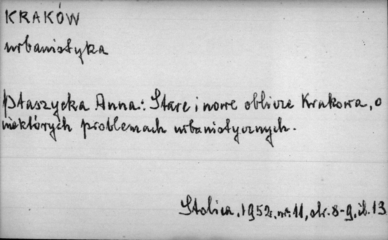 KRAKÓW
urbanistyka
Ptaszycka Anna: Stare i nowe oblicze Krakowa, o
niektórych problemach urbanistycznych.
Stolica, 1952, nr. 11, str. 8-9, il. 13